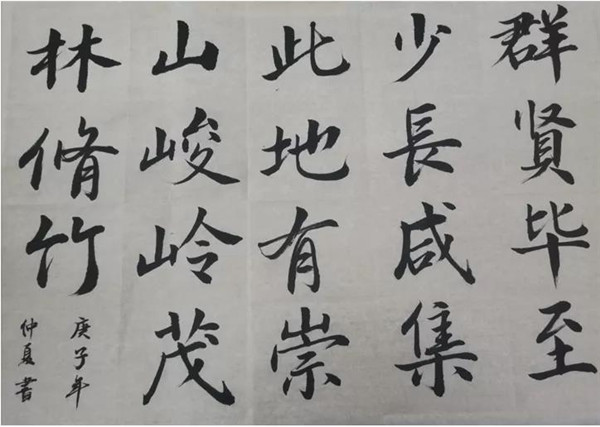 群贤毕至
少長咸集
此地有崇
山峻岭茂
林脩竹
庚子年
仲夏書